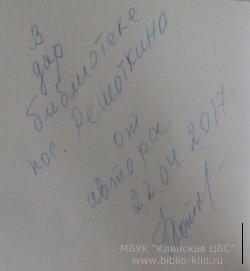 В
дар
библиотеке
пос. Решоткино
от
автора
22.04.2017г.
МБУК "Клинская ЦБС"
www.biblio-klin.ru